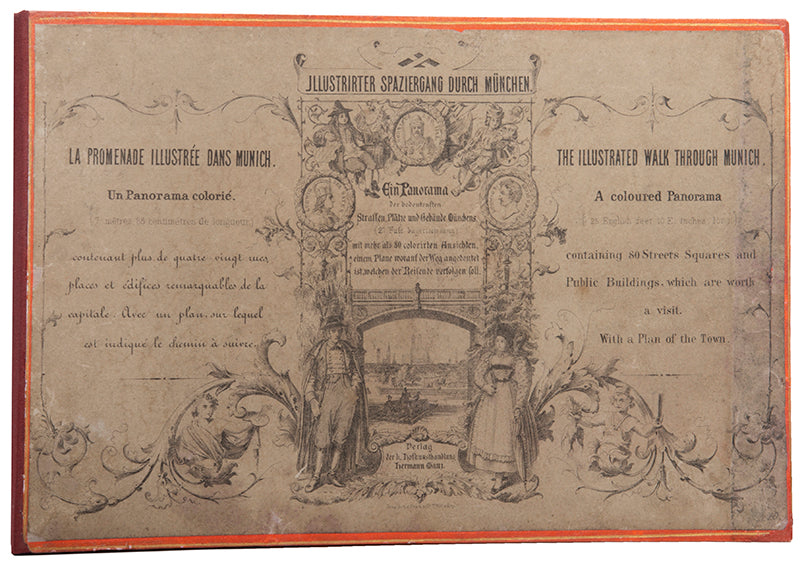 JLLUSTRIRTER SPAZIERGANG DURCH MÜNCHEN.
LA PROMENADE ILLUSTRÉE DANS MUNICH.
Un Panorama colorié.
(7 mètres, 88 centimètres de longueur.)
contenant plus de quatre vingt rues,
places et édifices remarquables de la
capitale. Avec un plan, sur lequel
est indiqué le chemin à suivre.
Ein Panorama
der bedeutensten
Strassen, Plätze und Gebäude Münchens
mit mehr als 80 colorirten Ansichten,
einem Plane worauf der Weg angedeutet
ist, welchen der Reisende verfolgen soll.
Verlag
der k. Hofkunsthandlung
Hermann Manz.
THE ILLUSTRATED WALK THROUGH MUNICH.
A coloured Panorama
25 English feet 10 E. inches
containing 80 Streets Squares and
Public Buildings, which are worth
a visit.
With a Plan of the Town.